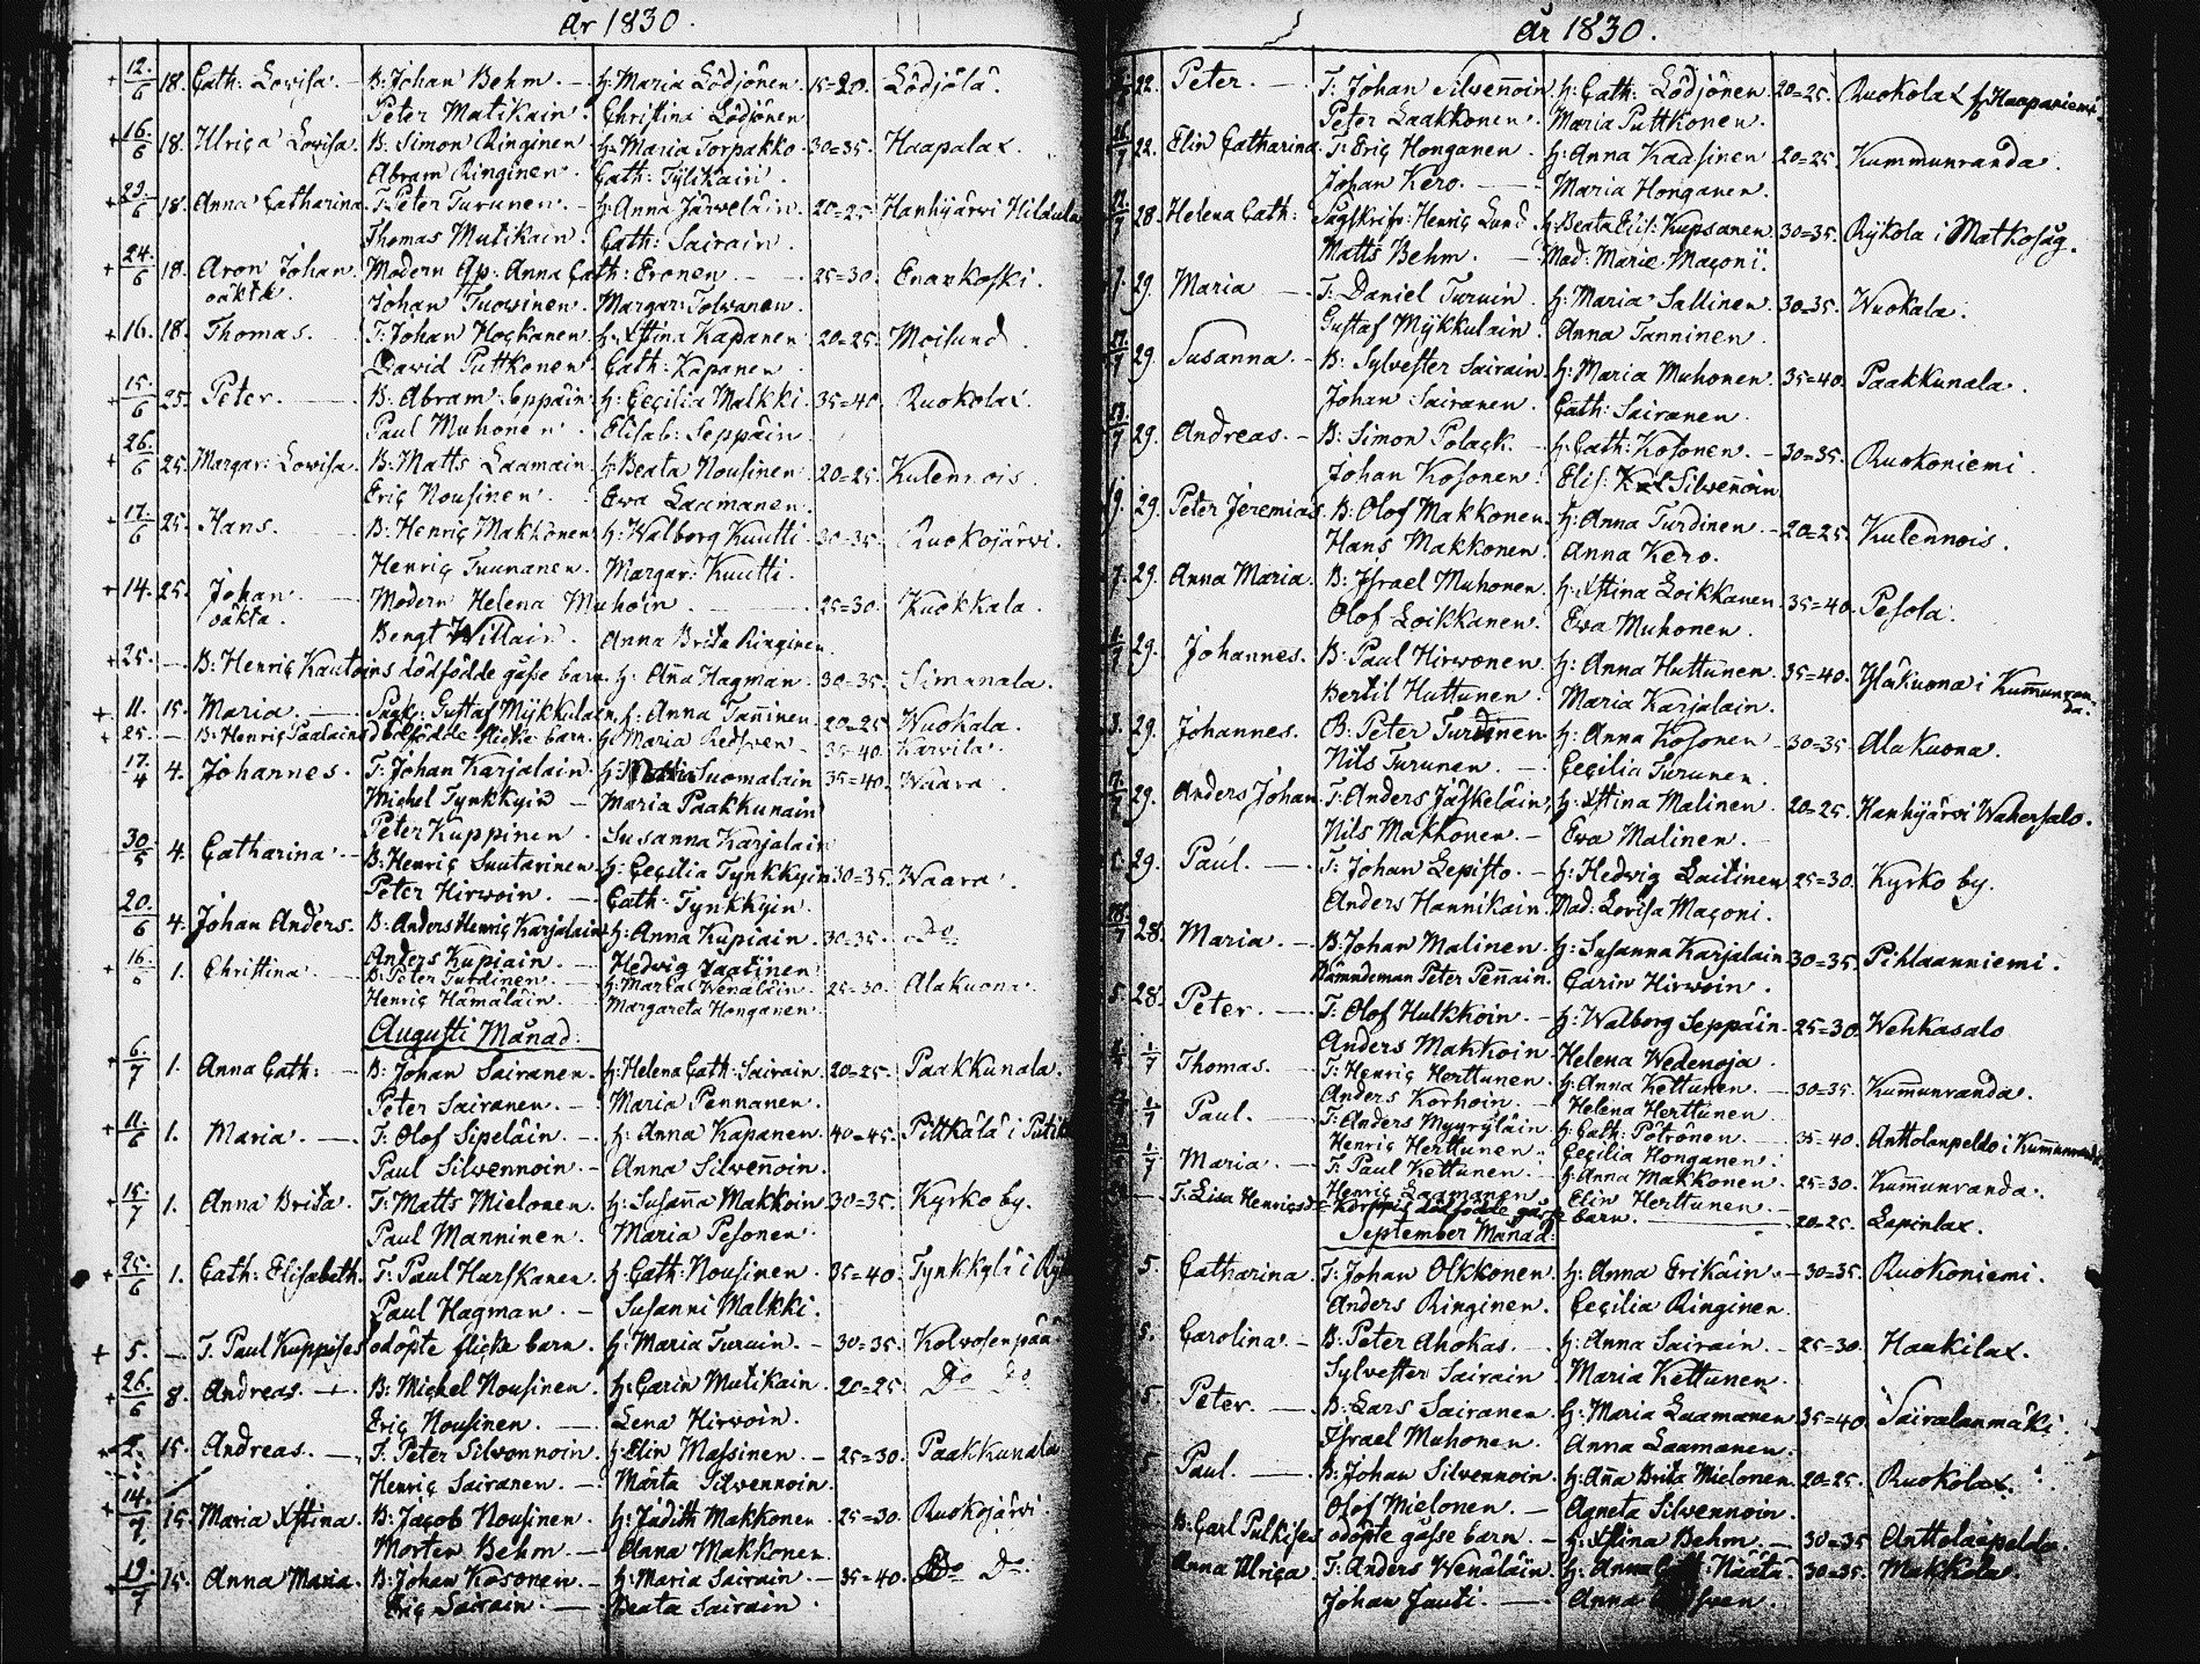 år 1830.
12./6 18. Cath: Lovisa. B: Johan Behm. H: Maria Lödjönen. 15=20. Lödjölä.
Peter Matikain. Christina Lödjönen
16./6 18. Ulrica Lovisa. B: Simon Ringinen H: Maria Torpakko. 30=35. Haapalax.
Abram Ringinen. Cath: Tylikain.
29./6 18. Anna Catharina. T: Peter Turunen. H: Anna Järveläin. 20=25. Hanhijärvi
Thomas Mutikain. Cath: Sairain.
24./6 18. Aron Johan. Modern Anna Cath: Eronen 25=30. Enarkoski.
oäkta. Johan Tuovinen. Margar: Tolvanen.
16. 18. Thomas. T: Johan Hockanen. H: Xstina Kapanen 20=25. Moilund.
David Puttkonen. Cath: Kapanen.
15./6 25. Peter. B: Abram Seppäin. H: Cecilia Malkki. 35=40. Ruokolax.
Paul Muhonen. Elisab: Seppäin.
26./6 25. Margar: Lovisa. B: Matts Laamain. H: Beata Nousinen 20=25. Kulennois.
Eric Nousinen. Eva Laamanen.
17./6 25. Hans. B: Henric Makkonen H: Walborg Kuutti. 30=35. Ruokojärvi.
Henric Tuunanen. Margar: Kuutti.
14. 25. Johan. Modern Helena Muhoin. 25=30. Kuokkala.
oäkta. Bengt Willain. Anna Brita Ringinen.
25. — B: Henric Kautoins dödfödde gosse barn. H: Aña Hagman. 30=35. Simanala.
11. 15. Maria. Gustaf Mykkulain. H: Anna Tañinen. 20=25 Wuokala.
25. — B: Henric Saalains dödfödde flicke barn. H: Maria Redsven 35=40. Karvila.
17./4 4. Johannes. T: Johan Karjalain. H: Suomalain 35=40. Waara.
Michel Tynkkyin Maria Paakkunain
Peter Kuppinen. Susanna Karjalain
30/5 4. Catharina. B: Henric Suutarinen. H: Cecilia Tynkkyin 30=35. Waara.
Peter Hirvoin. Cath: Tynkkyin.
20./6 4. Johan Anders. B: Anders Henric Karjalain H: Anna Kupiain. 30=35. Do.
Anders Kupiain. Hedvig Laatinen
16. 1. Christina. B: Peter Turdinen. H: Maria Wenäläin. 25=30. Alakuona.
Henric Hämäläin. Margareta Honganen.
Augusti Månad:
6./7 1. Anna Cath: B: Johan Sairanen. H: Helena Cath: Sairain. 20=25. Paakkunala.
Peter Sairanen. Maria Pennanen.
11./6 1. Maria. T: Olof Sipeläin. H: Anna Kapanen. 40=45. Pittkälä i
Paul Silvennoin. Anna Silveñoin.
15./7 1. Anna Brita. T: Matts Mielonen. H: Susaña Makkoin 30=35. Kyrko by.
Paul Manninen. Maria Pesonen.
25./6 1. Cath: Elisabeth. T: Paul Hurskanen. H: Cath: Nousinen. 35=40. Tynkkylä i
Paul Hagman. Susanni Malkki.
5. — T. Paul Kuppises odöpte flicke barn. H: Maria Turuin. 30=35. Kolvosenpää
26./6 8. Andreas. B: Michel Nousinen. H: Carin Mutikain. 20=25 Do Do
Eric Nousinen. Lena Hirvoin.
2. 15. Andreas. T: Peter Silvonnoin. H: Elin Massinen. 25=30. Paakkunala
Henric Sairanen. Märta Silvennoin.
14./7. 15. Maria Xstina. B: Jacob Nousinen. H: Judith Makkonen. 25=30. Ruokojärvi.
Morten Behm. Anna Makkonen.
19./7 15. Anna Maria. B: Johan Kosonen. H: Maria Sairain. 35=40. Do Do.
Eric Sairain. Beata Sairain.
år 1830.
22. Peter. T: Johan Silveñoin. H: Cath: Lödjönen. 20=25. Ruokolax Haapaniemi
Peter Laakkonen. Maria Puttkonen.
22. Elin Catharina. T: Eric Honganen. H: Anna Kaasinen 20=25. Kummunranda.
Johan Kero. Maria Honganen.
28. Helena Cath: Henric Lund. H: Beata Kupsanen. 30=35. Rykola i Matkosåg.
Matts Behm. Mad: Marie Maçoni.
29. Maria T: Daniel Turuin. H: Maria Sallinen. 30=35. Wuokala.
Gustaf Mykkulain. Anna Tanninen.
29. Susanna. B: Sylvester Sairain. H: Maria Muhonen. 35=40. Paakkunala.
Johan Sairanen. Cath: Sairanen.
29. Andreas. B: Simon Polack. H: Cath: Kosonen. 30=35. Ruokoniemi.
Johan Kosonen. Elis: Silveñoin
29. Peter Jeremias. B: Olof Makkonen. H: Anna Turdinen. 20=25. Kulennois.
Hans Makkonen. Anna Kero.
7. 29. Anna Maria. B: Israel Muhonen. H: Xstina Loikkanen. 35=40. Pesola.
Olof Loikkanen. Eva Muhonen.
29. Johannes. B: Paul Hirvonen H: Anna Huttunen. 35=40. Yläkuona i Kum̄unranda.
Bertil Huttunen. Maria Karjalain.
3. 29. Johannes. B. Peter Turdinen H: Anna Kosonen 30=35. Ala Kuona.
Nils Turunen. Cecilia Turunen.
29. Anders Johan. T: Anders Jäskeläin, H: Xstina Malinen. 20=25. Hanhijärvi Wahersalo.
Nils Makkonen. Eva Malinen.
29. Paul. T: Johan Lepisto. H: Hedvig Laitinen 25=30. Kyrko by.
Anders Hannikain. Mad: Lovisa Maçoni.
28. Maria. B: Johan Malinen. H: Susanna Karjalain 30=35. Pihlaanniemi.
Nämndeman Peter Peñain. Carin Hirvoin.
5. 28. Peter. T: Olof Hulkkoin. H: Walborg Seppäin. 25=30. Wehkasalo
Anders Makkoin. Helena Wedenoja.
1/7 Thomas. T: Henric Herttunen. H: Anna Kettunen. 30=35. Kum̄unranda.
Anders Korhoin. Helena Herttunen.
1/7 Paul. T: Anders Myyryläin. H: Cath: Pötrönen. 35=40. Anttolanpeldo i Kum̄unranda.
Henric Herttunen. Cecilia Honganen.
1/7 Maria. T: Paul Kettunen. H: Anna Makkonen. 25=30. Kum̄unranda.
Henric Laamanen Elin Herttunen.
T. Lisa Henricsd: Korppis dödfödde gosse barn. 20=25. Lapinlax.
September Månad:
5. Catharina. T: Johan Olkkonen. H: Anna Erikäin. 30=35. Ruokoniemi.
Anders Ringinen. Cecilia Ringinen.
5. Carolina. B: Peter Ahokas. H: Anna Sairain. 25=30. Haukilax.
Sylvester Sairain. Maria Kettunen.
5. Peter. B: Lars Sairanen. H: Maria Laamanen. 35=40. Sairalanmäki.
Israel Muhonen. Anna Laamanen.
5 Paul. B: Johan Silvennoin. H: Aña Brita Mielonen. 20=25. Ruokolax.
Olof Mielonen. Agneta Silvennoin.
B: Carl Pulkises odöpte gosse barn. H: Xstina Behm. 30=35 Anttolanpeldo.
Anna Ulrica. T: Anders Wenäläin. H: Anna Näätä. 30=35. Makkola.
Johan Jauti. Anna